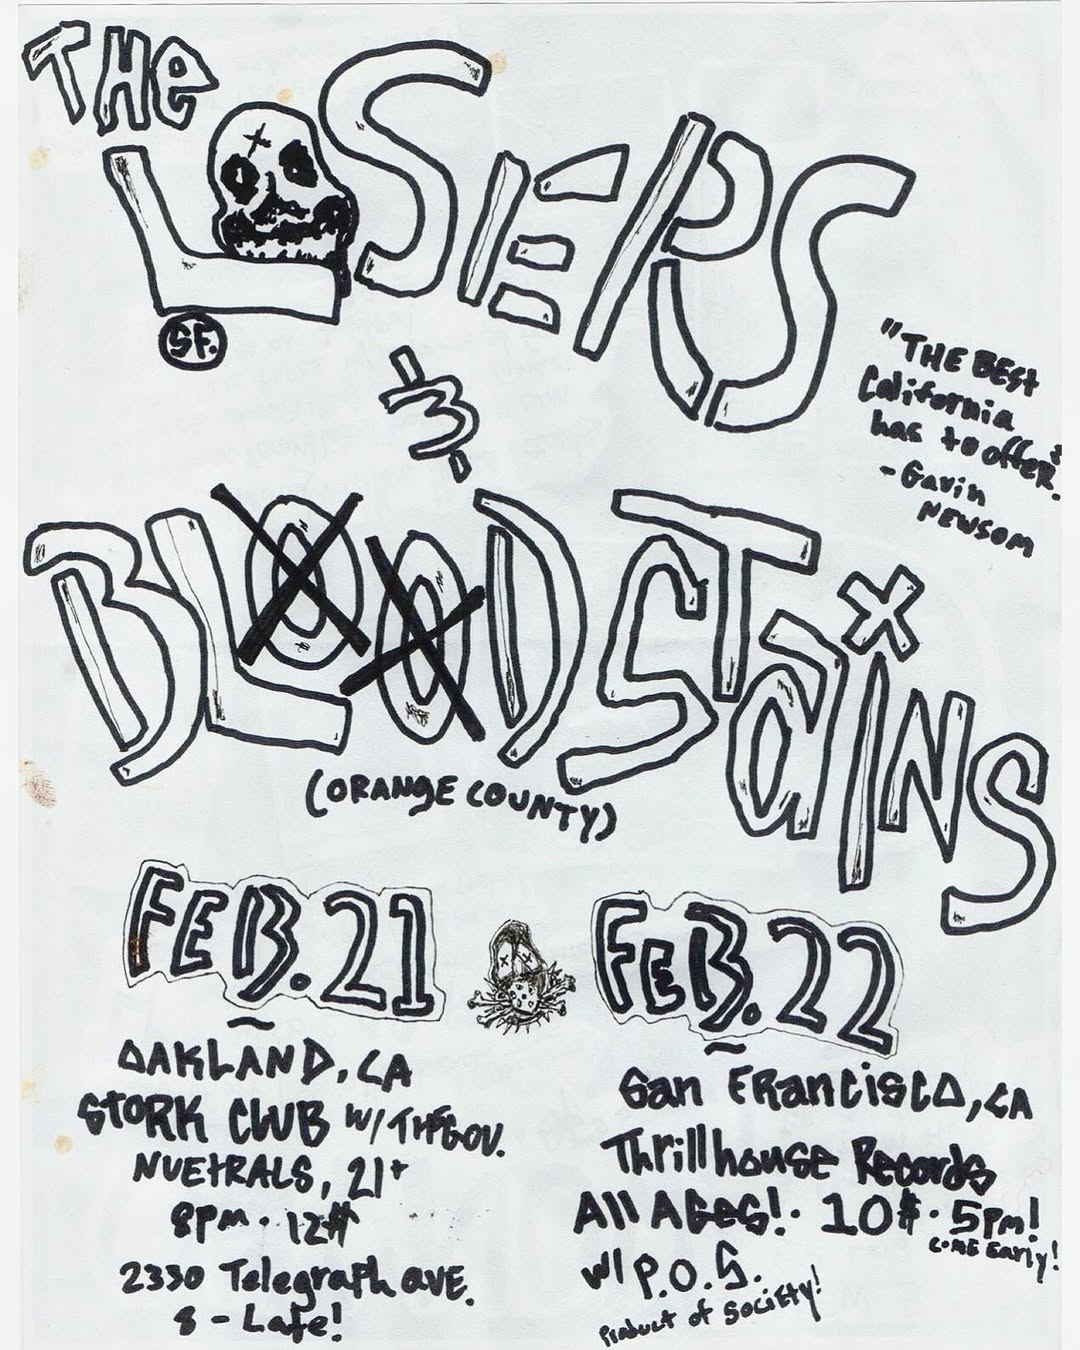 THE
LOSERS
SF.
&
"THE BEST
California
has to offer."
- Gavin
NEWSOM
BLOODSTAiNS
(ORANGE COUNTY)
FEB. 21
OAKLAND, CA
STORK CLUB W/ THE GOV.
NUETRALS, 21+
8PM · 12$
2330 Telegraph AVE.
8 - Late!
FEB. 22
San FRancisco, CA
Thrillhouse Records
All AGES! · 10$ · 5PM!
COME Early!
W/ P.O.S.
Product of Society!